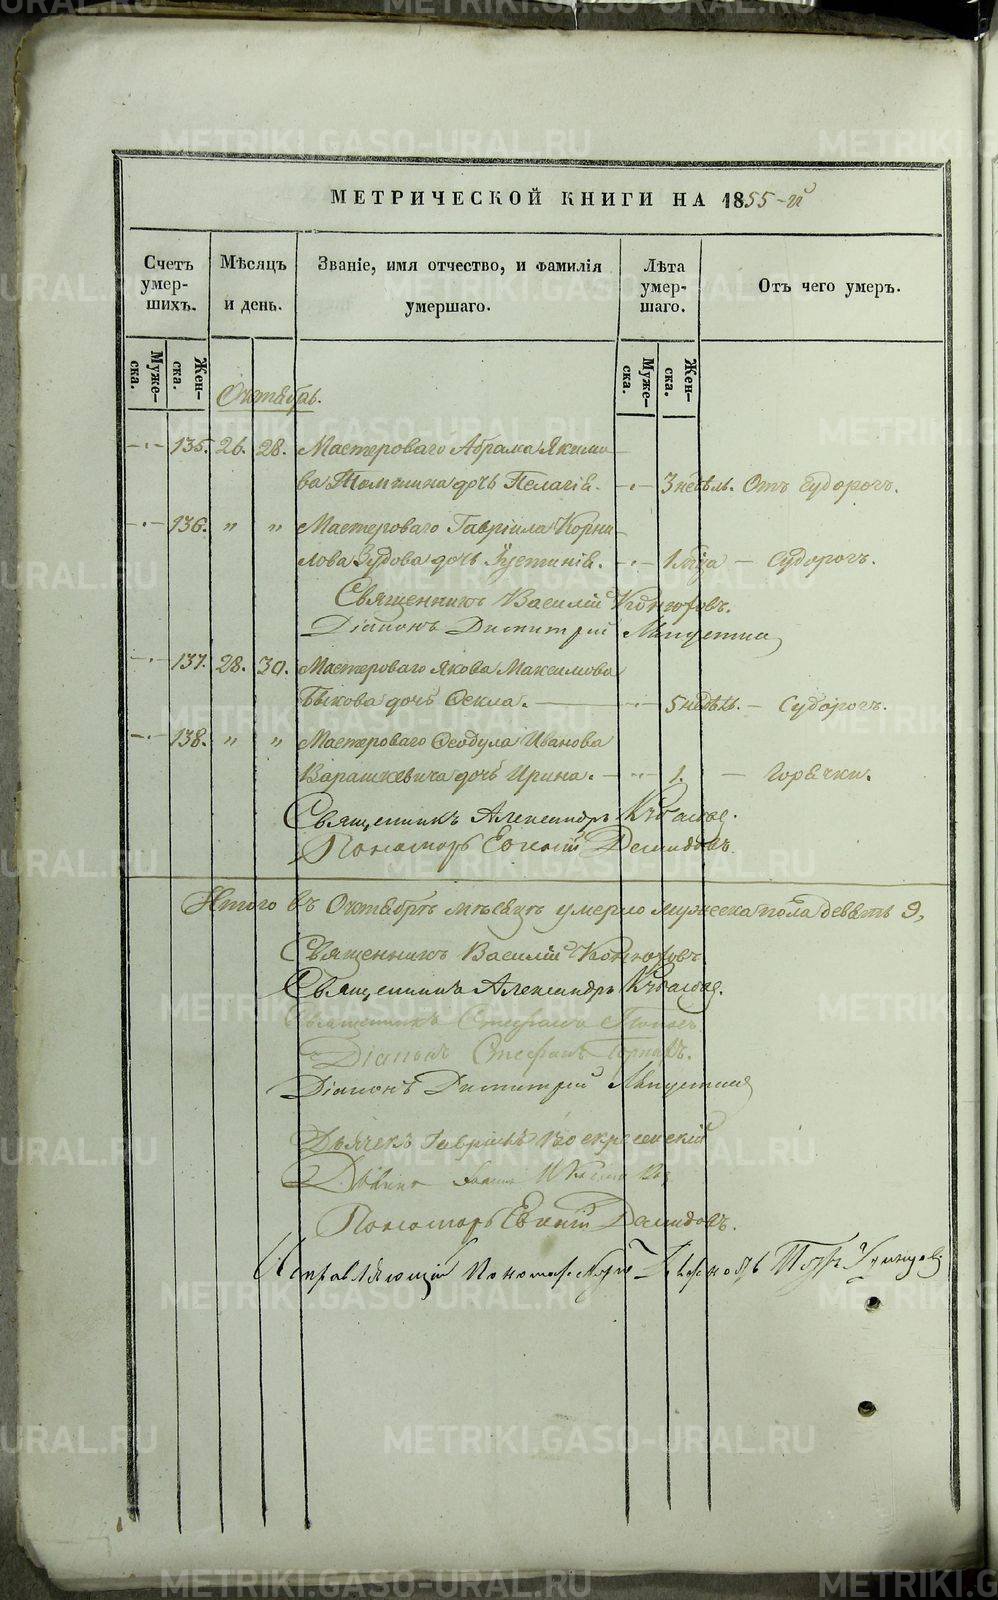 МЕТРИЧЕСКОЙ КНИГИ НА 1855-й
Счетъ умер-шихъ.
Мѣсяцъ и день.
Званіе, имя отчество, и фамилія умершаго.
Лѣта умер-шаго.
Отъ чего умеръ.
Муже-ска.
Жен-ска.
Муже-ска.
Жен-ска.
Октябрь.
135. 26. 28. Мастероваго Абрама Якимо-
ва дочь Пелагія. 3 недѣль. Отъ Судорогъ.
136. " " Мастероваго Гавріила Корни-
лова Зудова дочь Іустинія. 1 года – Судорогъ.
Священникъ Василій
Діаконъ Димитрій
137. 28. 30. Мастероваго Якова Максимова
Быкова дочь Ѳекла. 5 недѣль. – Судорогъ.
138. " " Мастероваго Ѳеодула Иванова
Варашкевича дочь Ирина. 1. – Горячки.
Священникъ Александръ
Пономарь Евгеній Демидовъ.
Итого въ Октябрѣ мѣсяцѣ умерло мужеска пола девять 9,
Священникъ Василій
Священникъ Александръ
Священникъ Стефанъ Поповъ
Діаконъ Стефанъ
Діаконъ Димитрій
Дьячекъ Гавріилъ Воскресенскій
Пономарь Евгеній Демидовъ.
Исправляющій
METRIKI.GASO-URAL.RU